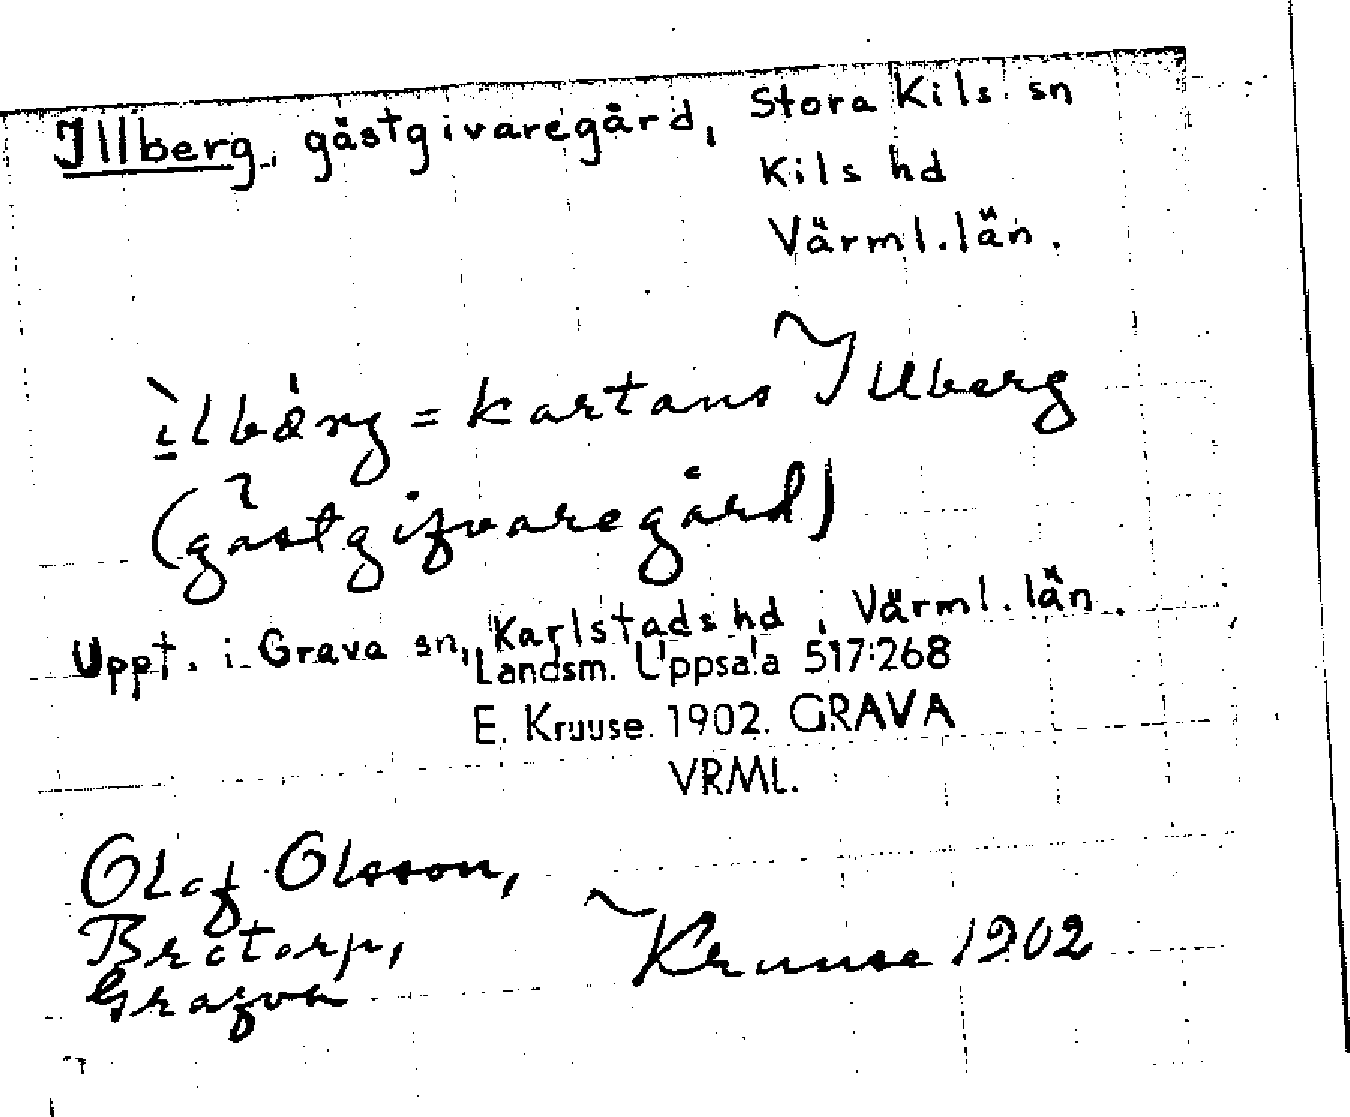 Illberg, gästgivaregård, Stora Kils sn
Kils hd
Värml. län.
ìlbä́rg = kartans Illberg
(gästgifvaregård)
Uppt. i Grava sn, Karlstads hd, Värml. län.
Landsm. Uppsala 517:268
E. Kruuse. 1902. GRAVA
VRML.
Olof Olsson,
Brotorp,
Grafva
Kruuse 1902